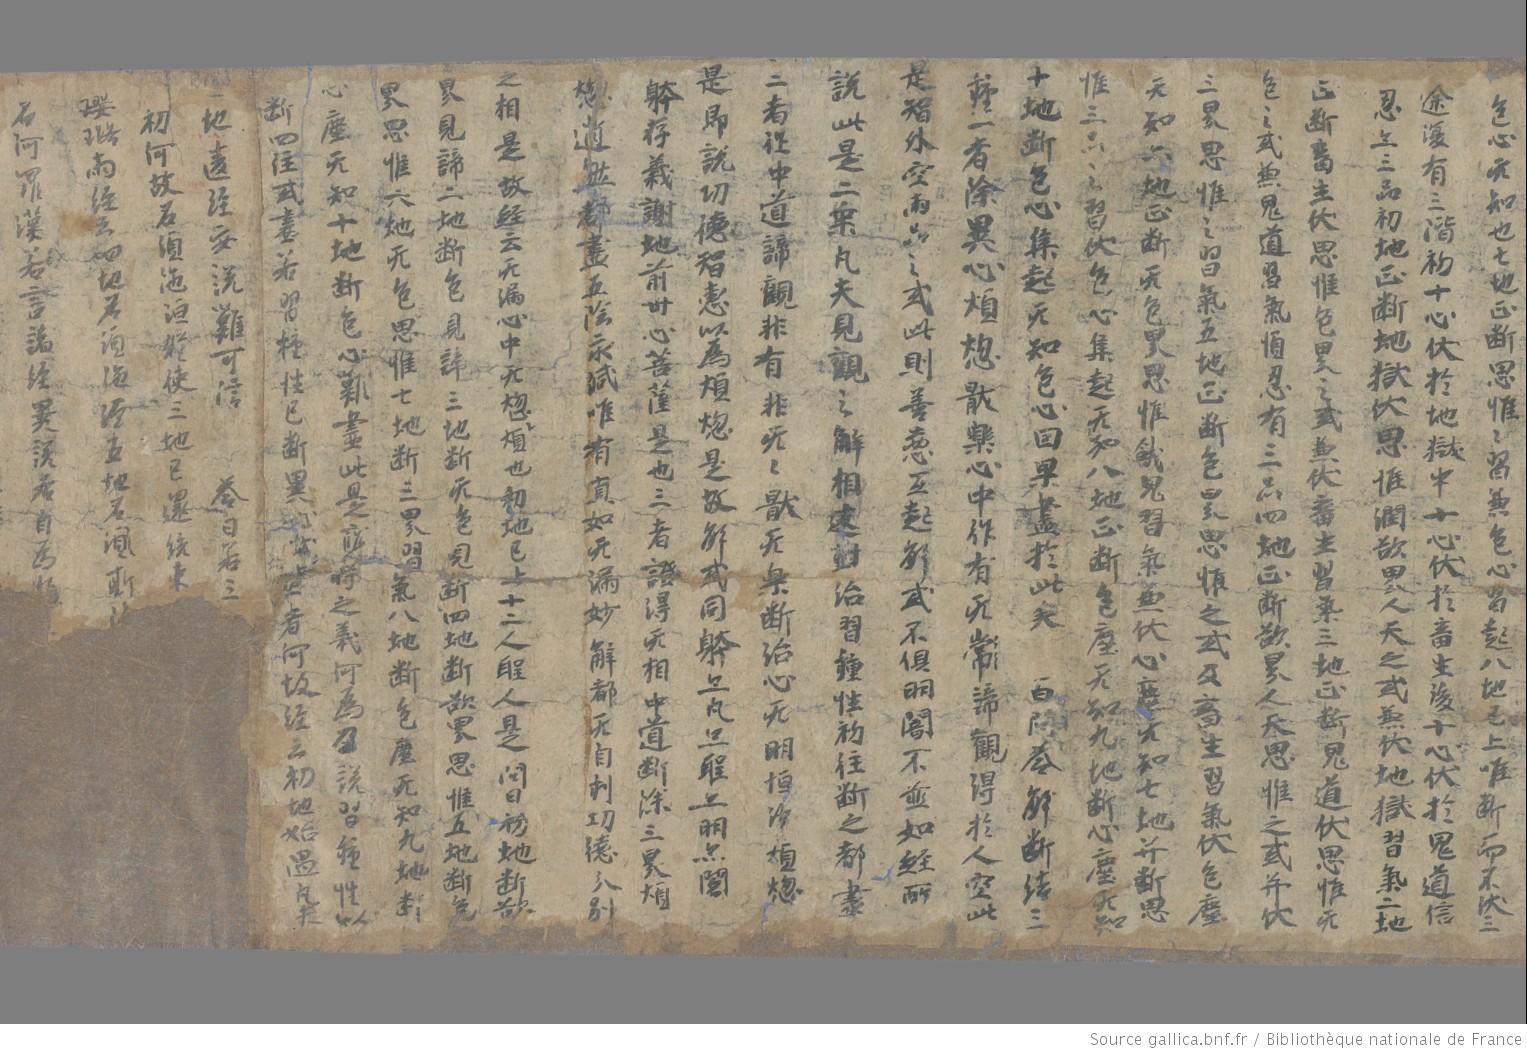 色心无知也七地正断思惟〻習無色心習起八地已上唯断而不伏三
途復有三階初十心伏於地獄中十心伏於畜生後十心伏於鬼道信
忍上三品初地正断地獄伏思惟潤欲界人天之或無伏地獄習氣二地
正断畜生伏思惟色界之或兼伏畜生習氣三地正断鬼道伏思惟无
色之或兼鬼道習氣順忍有三品四地正断欲界人天思惟之或并伏
三界思惟之習氣五地正断色界思惟之或及畜生習氣伏色塵
无知六地正断无色界思惟餓鬼習氣兼伏心塵无知七地并断思
惟三界之習伏色心集起无知八地正断色塵无知九地断心塵无知
十地断色心集起无知色心因果盡於此矣 百問荅 解断結三
種一者除異心煩惚猒樂心中作有无常諦觀得於人空此
是智外空而品之或此則善惡互起解或不俱明闇不並如經所
說此是二乘凡夫見觀之解相違對治習種性初住断之都盡
二者從中道諦觀非有非无〻猒无樂断治心无明恒沙煩惚
是即說功德智惠以為煩惚是故解或同躰亦凡亦聖亦明亦闇
躰存義謝地前卅心菩薩是也三者證得无相中道断除三界煩
惚道無都盡五陰永滅唯有真如无漏妙解都无自利功德八別
之相是故經云无漏心中无惚煩也初地已上十二人聖人是 問曰初地断欲
界見諦二地断色見諦三地断无色見断四地断欲界思惟五地断色
界思惟六地无色思惟七地断三界習氣八地断色塵无知九地断
心塵无知十地断色心難盡此是齊時之義何為召說習種性如
断四住或盡若習種性已断異 者何故經云初地始過凡夫
地遠經安說難可信 荅曰若三
初何故名須陁洹縱使三地已還統來
瓔珞兩經云四地名須陁洹五地名須斯
名阿羅漢若言諸經異說者自為